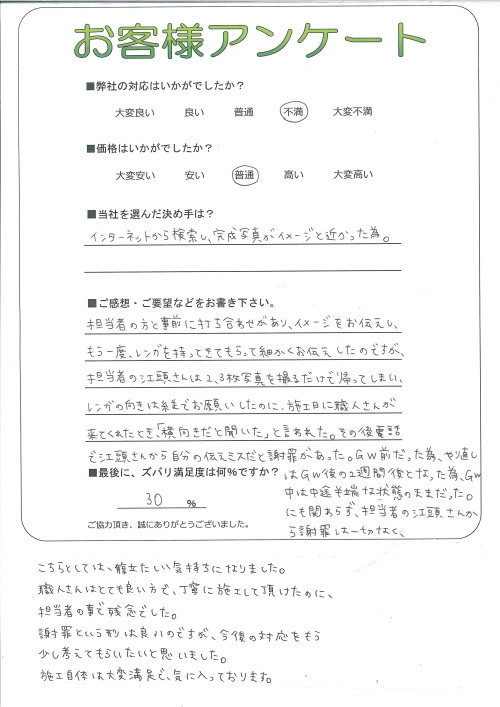 お客様アンケート
■弊社の対応はいかがでしたか?
大変良い 良い 普通 不満 大変不満
■価格はいかがでしたか?
大変安い 安い 普通 高い 大変高い
■当社を選んだ決め手は?
インターネットから検索し、完成写真がイメージと近かった為。
■ご感想・ご要望などをお書き下さい。
担当者の方と事前に打ち合わせがあり、イメージをお伝えし、
もう一度、レンガを持ってきてもらって細かくお伝えしたのですが、
担当者の江頭さんは2、3枚写真を撮るだけで帰ってしまい、
レンガの向きは縦でお願いしたのに、施工日に職人さんが
来てくれたとき、「横向きだと聞いた」と言われた。その後電話
で江頭さんから自分の伝えミスだと謝罪があった。GW前だった為、やり直し
はGW後の2週間後となった為、GW
中は中途半端な状態のままだった。
にも関わらず、担当者の江頭さんか
ら謝罪は一切なく、
■最後に、ズバリ満足度は何%ですか?
30 %
ご協力頂き、誠にありがとうございました。
こちらとしては、腹立たしい気持ちになりました。
職人さんはとても良い方で、丁寧に施工して頂けたのに、
担当者の事で残念でした。
謝罪という形は良いのですが、今後の対応をもう
少し考えてもらいたいと思いました。
施工自体は大変満足で、気に入っております。